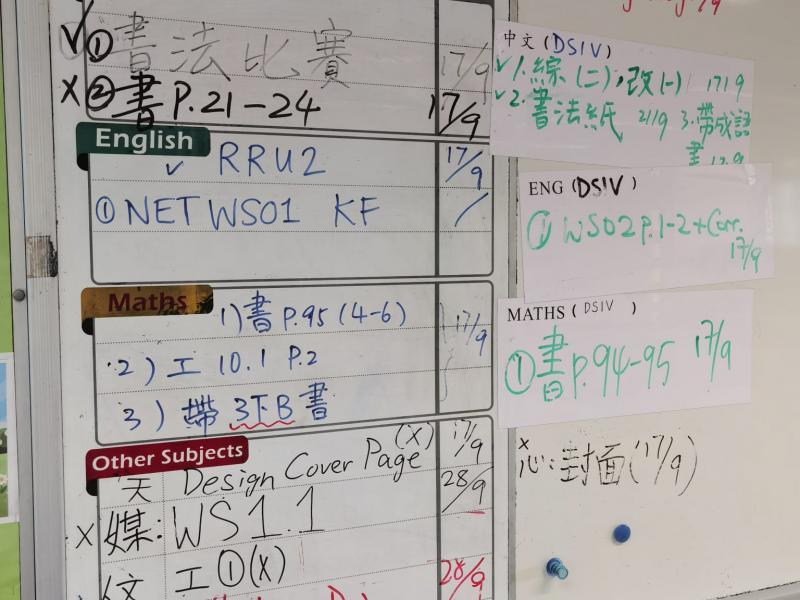 ✓ ① 書法比賽 17/9
X ② 書 P.21-24 17/9
English
✓ RRU2 17/9
① NET WS01 KF /
Maths
1) 書 P.95 (4-6) 17/9
2) 工 10.1 P.2
3) 帶 3下B 書
Other Subjects
Design Cover Page (X) 17/9
28/9
X 媒: WS1.1
工①(X) 28/9
中文 (DSIV)
✓ 1. 綜(二), 改(一) 17/9
✓ 2. 書法紙 21/9 3. 帶成語
書
ENG (DSIV)
① WS02 P.1-2 + Corr.
17/9
MATHS (DSIV)
① 書 P.94-95 17/9
x
心: 封面 (17/9)